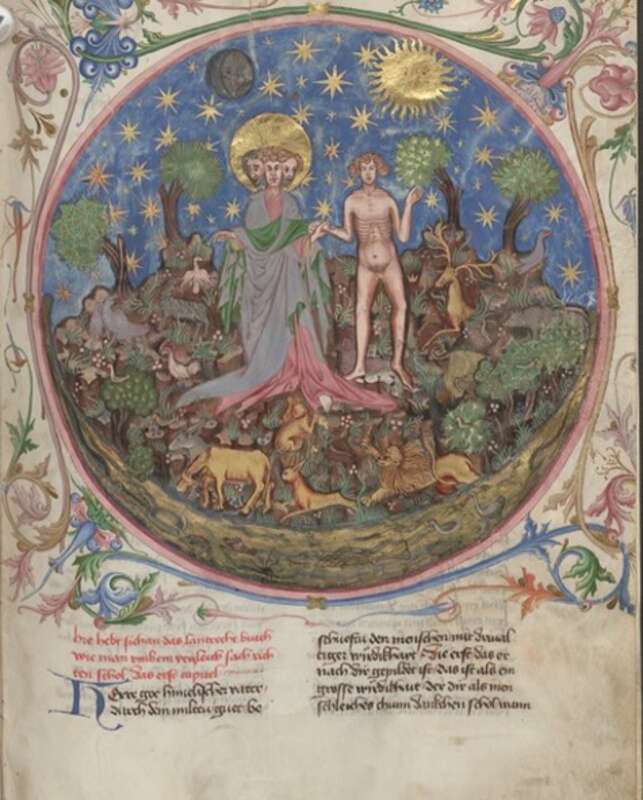 hie hebt sich an das lantrecht buech
wie man umb ein yesleich sach rich
ten schol das erst capitel
Herre got himelischer vater
durch dein milteu guet be
schuefdu den menschen mit drival
tiger wirdikhait Die erst das er
nach dir gepildet ist das ist als ein
grosse wirdikhait der dir als men
schleiches chunn dankchen schol wann